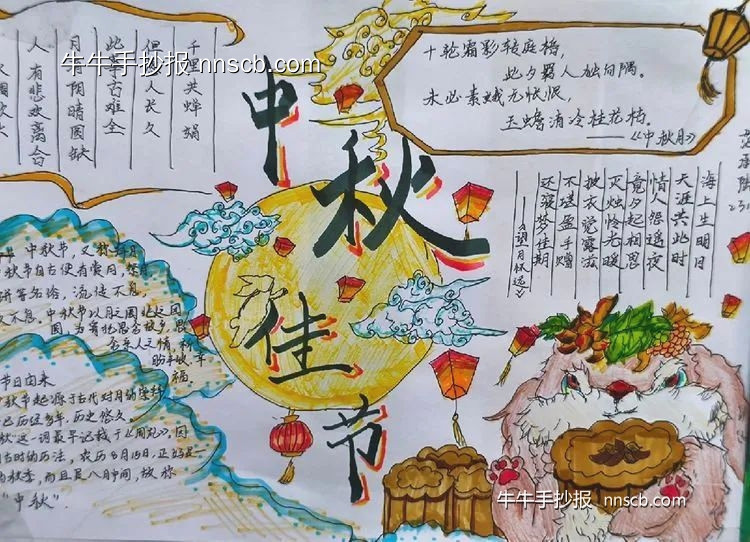 牛牛手抄报 nnscb.com
中秋佳节
千里共婵娟
但人长久
此古难全
月阴晴圆缺
人有悲欢离合
十轮霜彩转庭梧,
此夕羁人独向隅。
未必素娥无怅恨,
玉蟾清冷桂花孤。
——《中秋月》
海上生明月
天涯共此时
情人怨遥夜
竟夕起相思
灭烛怜光暖
披衣觉露滋
不堪盈手赠
还寝梦佳期
——《望月怀远》
中秋节,又称
秋节自古便有赏月,祭月
流传不息
不息,中秋节以月之圆
圆,为寄托思念故乡,思
念亲人之情
福。
节日由来
秋节起源于古代对月的崇拜
已历经多年.历史悠久
秋”这一词最早记载于《周礼》,因
古时的历法,农历8月15日,正好是一
的秋季,而且是八月中间,故称
“中秋”.
牛牛手抄报 nnscb.com